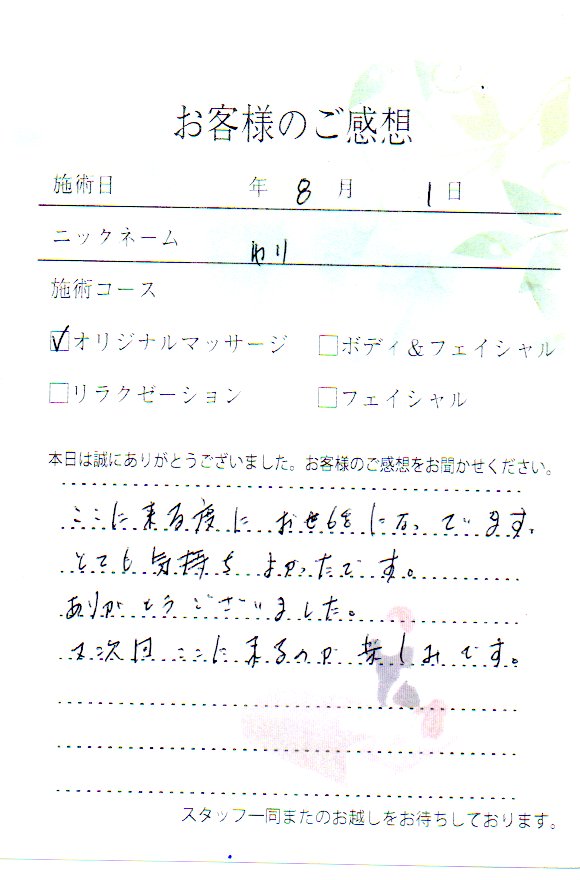 お客様のご感想
施術日 年 8 月 1 日
ニックネーム
施術コース
オリジナルマッサージ ボディ＆フェイシャル
リラクゼーション フェイシャル
本日は誠にありがとうございました。お客様のご感想をお聞かせください。
ここに来る度にお世話になっています。
とても気持ちよかったです。
ありがとうございました。
又次回ここに来るのが楽しみです。
スタッフ一同またのお越しをお待ちしております。